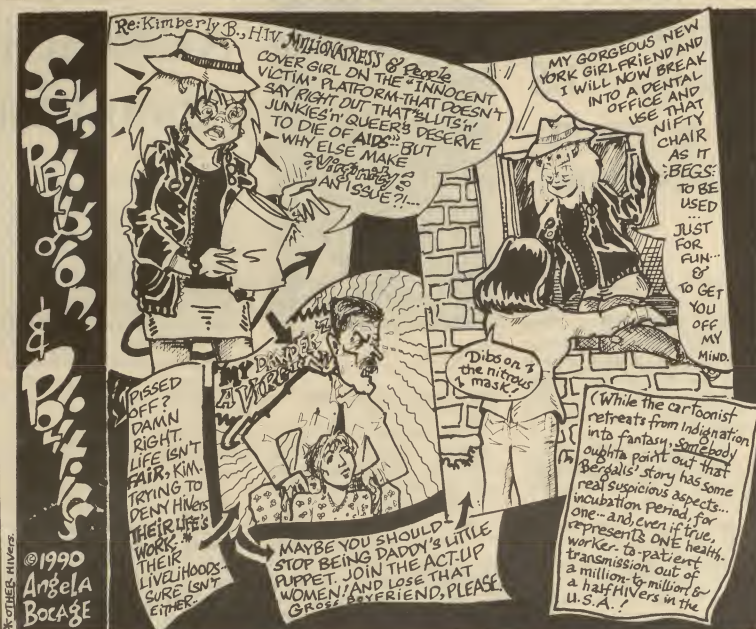 Sex,
Religion,
& Politics
©1990
Angela
Bocage
* OTHER HIVers.
Re: Kimberly B., HIV MILLIONAIRESS & People
COVER GIRL ON THE "INNOCENT
VICTIM" PLATFORM-THAT DOESN'T
SAY RIGHT OUT THAT "SLUTS'n'
JUNKIES'n' QUEERS DESERVE
TO DIE OF AIDS"... BUT
WHY ELSE MAKE
Virginity
AN ISSUE?!...
MY GORGEOUS NEW
YORK GIRLFRIEND AND
I WILL NOW BREAK
INTO A DENTAL
OFFICE AND
USE THAT
NIFTY
CHAIR
AS IT
BEGS
TO BE
USED
... JUST
FOR
FUN...
&
TO GET
YOU
OFF
MY
MIND.
Dibs on
the nitrous
mask!
PISSED
OFF?
DAMN
RIGHT.
LIFE ISN'T
FAIR, KIM.
TRYING TO
DENY HIVers
THEIR LIFE'S
WORK*
THEIR
LIVELIHOODS-
SURE ISN'T
EITHER..
MY
A WORK
MAYBE YOU SHOULD-
STOP BEING DADDY'S LITTLE
PUPPET. JOIN THE ACT-UP
WOMEN! AND LOSE THAT
GROSS BOYFRIEND, PLEASE.
(While the cartoonist
retreats from indignation
into fantasy, somebody
oughta point out that
Bergalis' story has some
real suspicious aspects...
incubation period, for
one... and, even if true,
represents ONE health-
worker-to-patient
transmission out of
a million-to-million &
a half HIVers in the
U.S.A.!